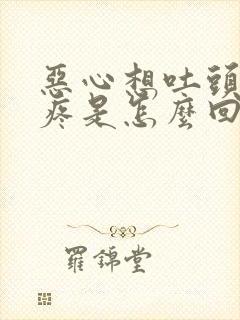 惡心想吐頭
疼是怎麼回
羅錦堂